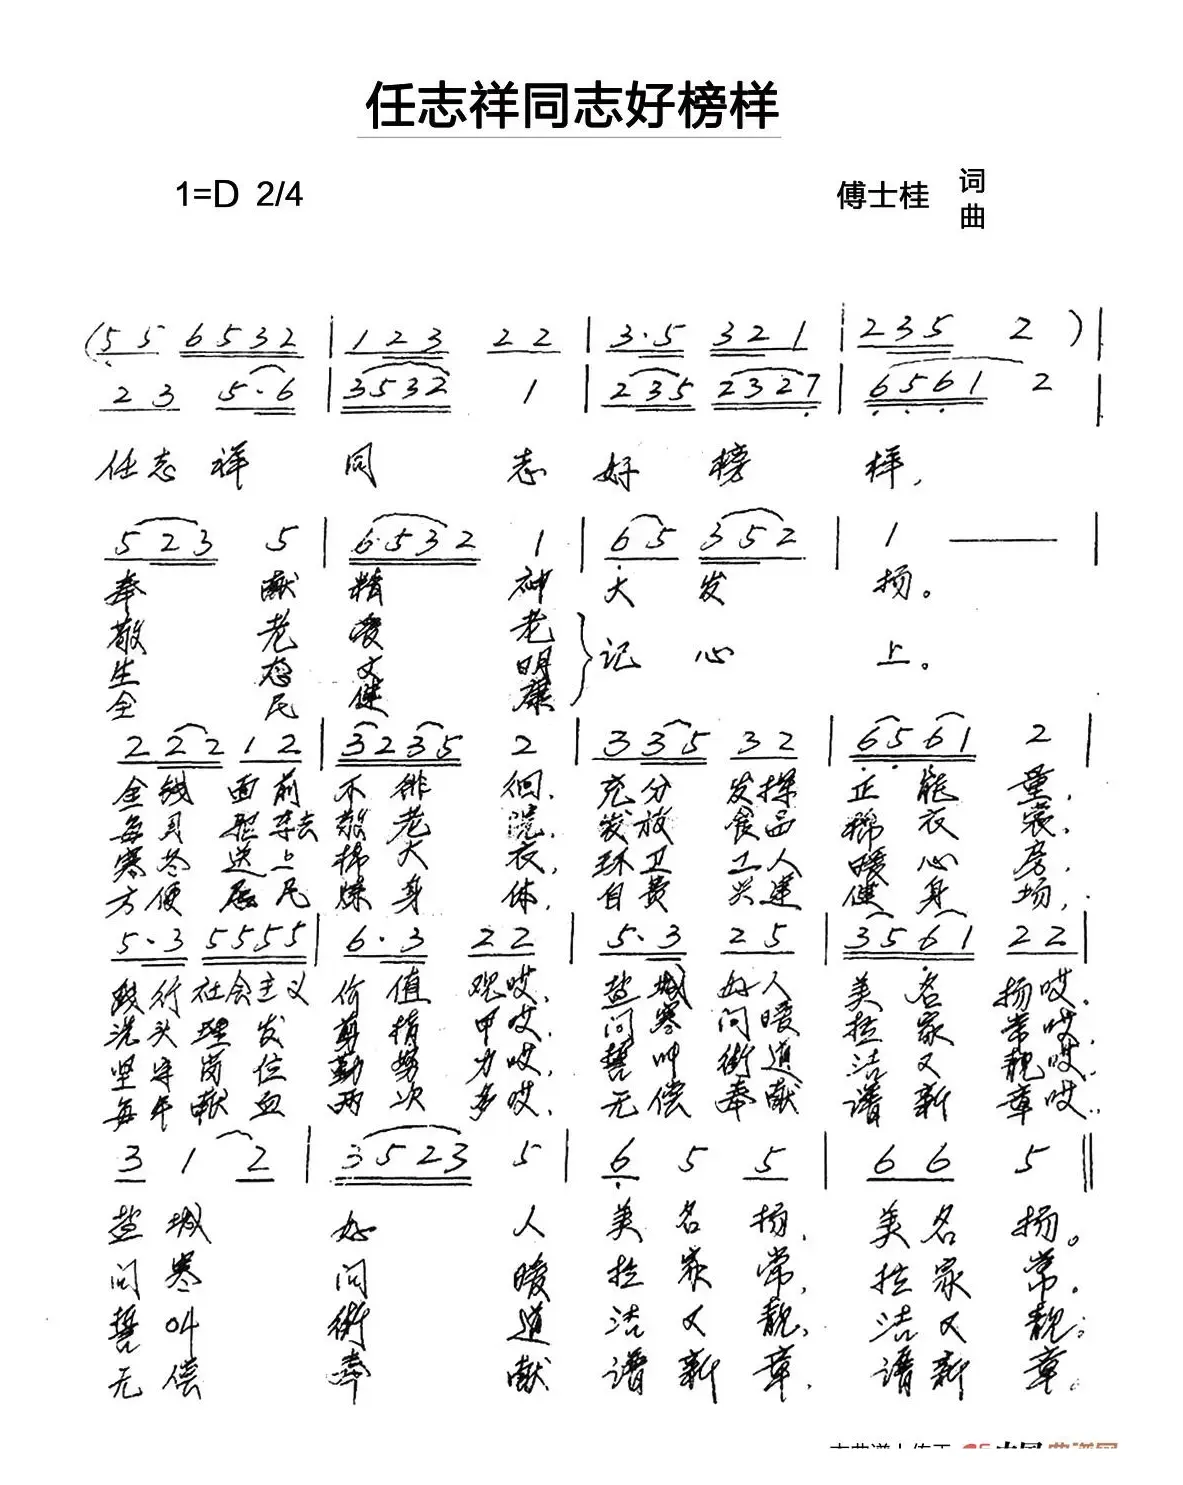 任志祥同志好榜样
1=D 2/4
傅士桂 词
曲
(5 5 6 5 3 2 | 1 2 3 2 2 | 3·5 3 2 1 | 2 3 5 2 ) |
2 3 5·6 | 3 5 3 2 1 | 2 3 5 2 3 2 7 | 6 5 6 1 2 |
任志祥 同 志 好 榜 样,
5 2 3 5 | 6·5 3 2 1 | 6 5 3 5 2 | 1 — |
奉 献 精 神 大 发 扬。
敬 老 爱 老
生 态 文 明 记 心 上。
全 民 健 康
2 2 2 1 2 | 3 2 3 5 2 | 3 3 5 3 2 | 6 5 6 1 2 |
金钱 面前 不 徘 徊, 充分 发挥 正 能 量,
每月 去 敬 老 院, 发放 食品 棉 衣 裳,
寒冬 送上 棉 大 衣, 环卫 工人 暖 心 房,
方便 居民 炼 身 体, 自费 兴建 健 身 场,
5·3 5 5 5 5 | 6·3 2 2 | 5·3 2 5 | 3 5 6 1 2 2 |
践行社会主义 价 值 观哎, 盐城好人 美 名 扬哎,
洗头理发 剪 指 甲哎, 问寒问暖 拉 家 常哎,
坚守岗位 勤 努 力哎, 街道 洁 又 靓哎,
每年献血 两 次 多哎, 无偿奉献 谱 新 章哎,
3 1 2 | 3 5 2 3 5 | 6 5 5 | 6 6 5 ‖
盐城 好 人 美名扬, 美名扬。
问寒 问 暖 拉家常, 拉家常。
街 道 洁又靓, 洁又靓;
无偿 奉 献 谱新章, 谱新章。